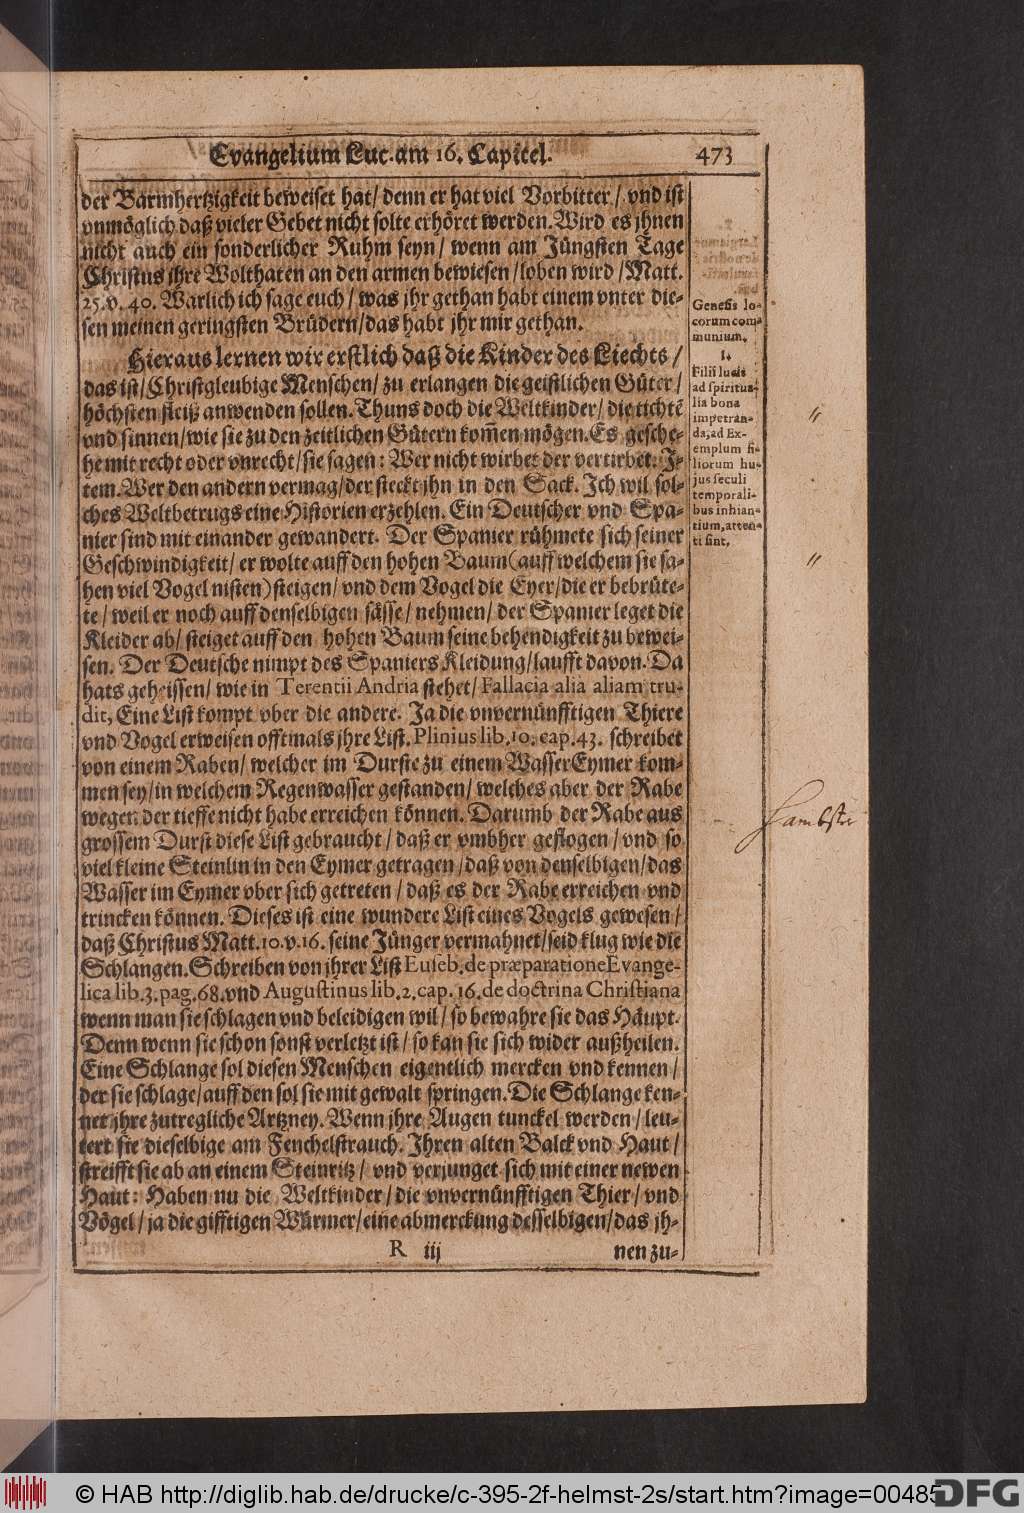 Evangelium Luc. am 16. Capitel. 473
der Barmhertzigkeit beweiset hat/ denn er hat viel Vorbitter/ vnd ist
vnmöglich daß vieler Gebet nicht solte erhöret werden. Wird es jhnen
nicht auch ein sonderlicher Ruhm seyn/ wenn am Jüngsten Tage
Christus jhre Wolthaten an den armen bewiesen/ loben wird/ Matt.
25. v. 40. Warlich ich sage euch/ was jhr gethan habt einem vnter die-
sen meinen geringsten Brüdern/ das habt jhr mir gethan.
Hieraus lernen wir erstlich daß die Kinder des Liechts/
das ist/ Christgleubige Menschen/ zu erlangen die geistlichen Güter/
höchsten fleiß anwenden sollen. Thuns doch die Weltkinder/ die tichtē
vnd sinnen/ wie sie zu den zeitlichen Gütern kom̃en mögen. Es gesche-
he mit recht oder vnrecht/ sie sagen: Wer nicht wirbet der vertirbet. J-
tem. Wer den andern vermag/ der steckt jhn in den Sack. Ich wil sol-
ches Weltbetrugs eine Historien erzehlen. Ein Deutscher vnd Spa-
nier sind mit einander gewandert. Der Spanier rühmete sich seiner
Geschwindigkeit/ er wolte auff den hohen Baum (auff welchem sie sa-
hen viel Vogel nisten) steigen/ vnd dem Vogel die Eyer/ die er bebrüte-
te/ weil er noch auff denselbigen sässe/ nehmen/ der Spanier leget die
Kleider ab/ steiget auff den hohen Baum seine behendigkeit zu bewei-
sen. Der Deutsche nimpt des Spaniers Kleidung/ laufft davon. Da
hats geheissen/ wie in Terentii Andria stehet/ Fallacia alia aliam tru-
dit, Eine List kompt vber die andere. Ja die vnvernünfftigen Thiere
vnd Vogel erweisen offtmals jhre List. Plinius lib. 10. cap. 43. schreibet
von einem Raben/ welcher im Durste zu einem WasserEymer kom-
men sey/ in welchem Regenwasser gestanden/ welches aber der Rabe
wegen der tieffe nicht habe erreichen können. Darumb der Rabe aus
grossem Durst diese List gebraucht/ daß er vmbher geflogen/ vnd so
viel kleine Steinlin in den Eymer getragen/ daß von denselbigen/ das
Wasser im Eymer vber sich getreten/ daß es der Rabe erreichen vnd
trincken können. Dieses ist eine wundere List eines Vogels gewesen/
daß Christus Matt. 10. v. 16. seine Jünger vermahnet/ seid klug wie die
Schlangen. Schreiben von jhrer List Euseb. de præparatione Evange-
lica lib. 3. pag. 68. vnd Augustinus lib. 2. cap. 16. de doctrina Christiana
wenn man sie schlagen vnd beleidigen wil/ so bewahre sie das Häupt.
Denn wenn sie schon sonst verletzt ist/ so kan sie sich wider außheilen.
Eine Schlange sol diesen Menschen eigentlich mercken vnd kennen/
der sie schlage/ auff den sol sie mit gewalt springen. Die Schlange ken-
net jhre zutregliche Artzney. Wenn jhre Augen tunckel werden/ leu-
tert sie dieselbige am Fenchelstrauch. Ihren alten Balck vnd Haut/
streifft sie ab an einem Steinritz/ vnd verjunget sich mit einer newen
Haut: Haben nu die Weltkinder/ die vnvernünfftigen Thier/ vnd
Vögel/ ja die gifftigen Würmer/ eine abmerckung desselbigen/ das jh-
R iij nen zu-
Genesis lo-
corum com-
munium.
1.
Filii lucis
ad spiritua-
lia bona
impetran-
da, ad Ex-
emplum fi-
liorum hu-
jus seculi
temporali-
bus inhian-
tium, atten-
ti sint.
© HAB http://diglib.hab.de/drucke/c-395-2f-helmst-2s/start.htm?image=00485
DFG